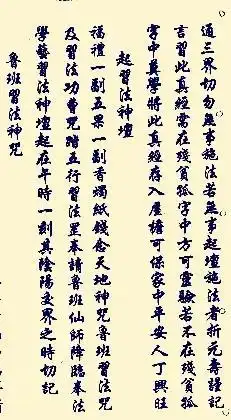 通三界切勿無事施法若無事起壇施法者折元壽謹記
言習此真經常在殘貧孤字中方可靈驗若不在殘貧孤
字中莫學將此真經存入屋簷可保家中平安人丁興旺
起習法神壇
福禮一副五果一副香燭紙錢念天地神咒魯班習法咒
及習法功曹咒踏五行習法罡奉請魯班仙師降臨奉法
學藝習法神壇起在午時一刻其陰陽交界之時切記
魯班習法神咒